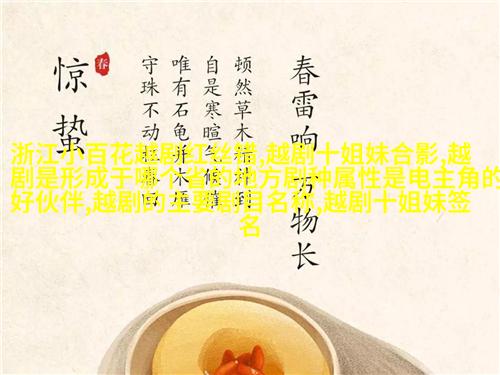 春雷响 万物长
顿然草木精神到
自是寒暄气候催
唯有石龟并木雁
守珠不动
惊蛰
春
浙江小百花越剧红丝错,越剧十姐妹合影,越
剧是形成于哪个省的地方剧种属性是电主角的
好伙伴,越剧的主要剧目名称,越剧十姐妹签
名